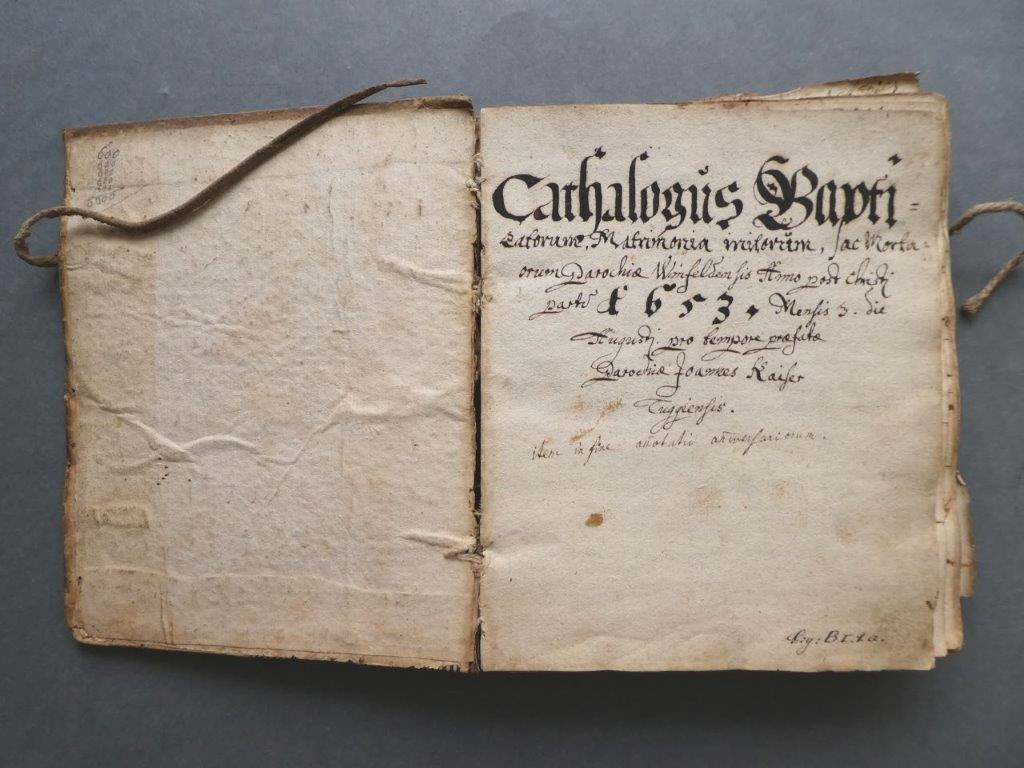 600
0000
Cathalogus Bapti=
zatorum, Matrimonia initorum, ac Mortu=
orum Parochiæ Winfeldensis Anno post Christi
partū 1653, Mensis 3. die
Augusti. pro tempore præfatæ
Parochiæ Joannes Kaiser
Tuggiensis.
item in fine anotatio aniversariorum.